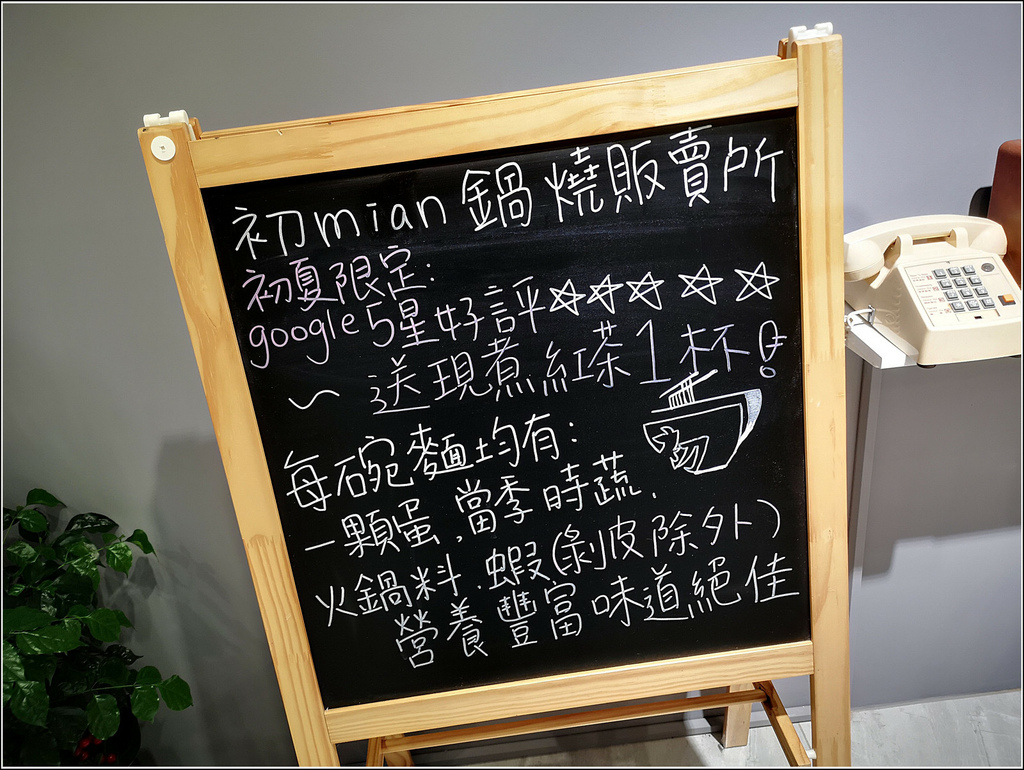 初mian鍋燒販賣所
初夏限定:
google5星好評☆☆☆☆☆
~送現煮紅茶1杯!
每碗麵均有:
一顆蛋.當季時蔬.
火鍋料.蝦(剝皮除外)
營養豐富味道絕佳
初